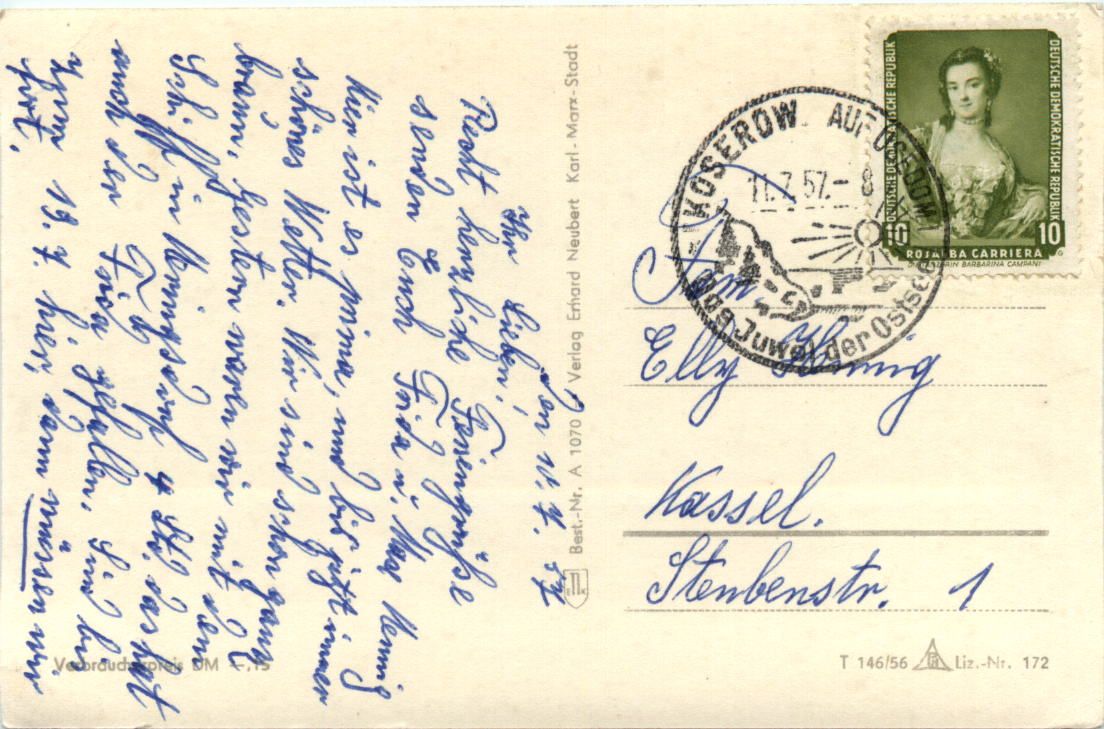 den 11. 7. 57
Ihr Lieben!
Recht herzliche Feriengrüße
senden Euch Frida u. Max Hennig
Hier ist es prima, und bis jetzt immer
schönes Wetter. Wir sind schon ganz
braun. Gestern waren wir mit dem
Schiff in Heringsdorf 4 Std. das hat
auch der Frida gefallen. Sind bis
zum 19. 7. hier, dann müssen wir
fort.
Verbraucherpreis DM -,15
Best.-Nr. A 1070 Verlag Erhard Neubert Karl-Marx-Stadt
KOSEROW AUF USEDOM
11.7.57.- 8
Das Juwel der Ostsee
DEUTSCHE DEMOKRATISCHE REPUBLIK
DEUTSCHE DEMOKRATISCHE REPUBLIK
10 10
ROSALBA CARRIERA
TÄNZERIN BARBARINA CAMPANI
Fam.
Elly Hennig
Kassel.
Steubenstr. 1
T 146/56 Liz.-Nr. 172